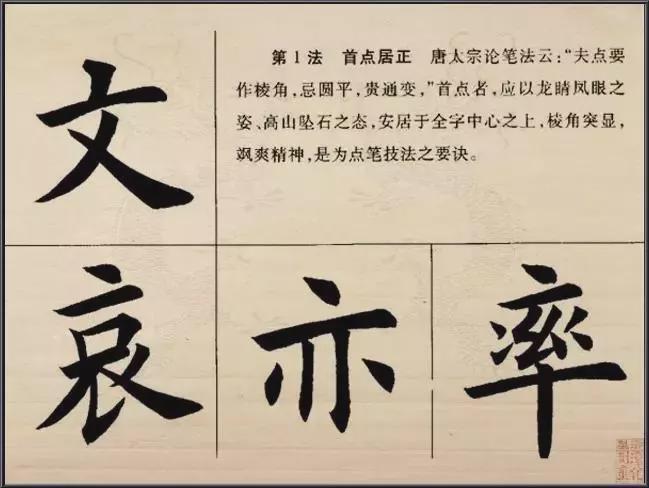 文
第1法 首点居正 唐太宗论笔法云:“夫点要
作棱角,忌圆平,贵通变,”首点者,应以龙睛凤眼之
姿、高山坠石之态,安居于全字中心之上,棱角突显,
飒爽精神,是为点笔技法之要诀。
哀 亦 率